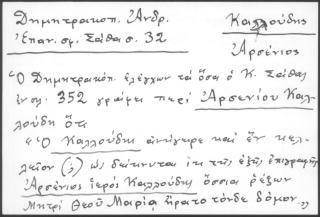 Δημητρακοπ. Ἀνδρ.
Καλλούδης
Ἐπαν. σημ. Σάθα σ. 32
Ἀρσένιος
Ὁ Δημητρακόπ. ἐλέγχων τά ὅσα ὁ Κ. Σάθας
ἐν σημ. 352 γράφει περί Ἀρσενίου Καλ-
λούδη ὅτι
"Ὁ Καλλούδης ἀνήγειρε καί ἕν κελ-
λεῖον (;) ὡς δείκνυται ἐκ τῆς ἑξῆς ἐπιγραφῆς
Ἀρσένιος ἱερός Καλλούδης ὅσσια ῥέζων
Μητρί Θεοῦ Μαρίᾳ ὥρατο τόνδε δόμον"